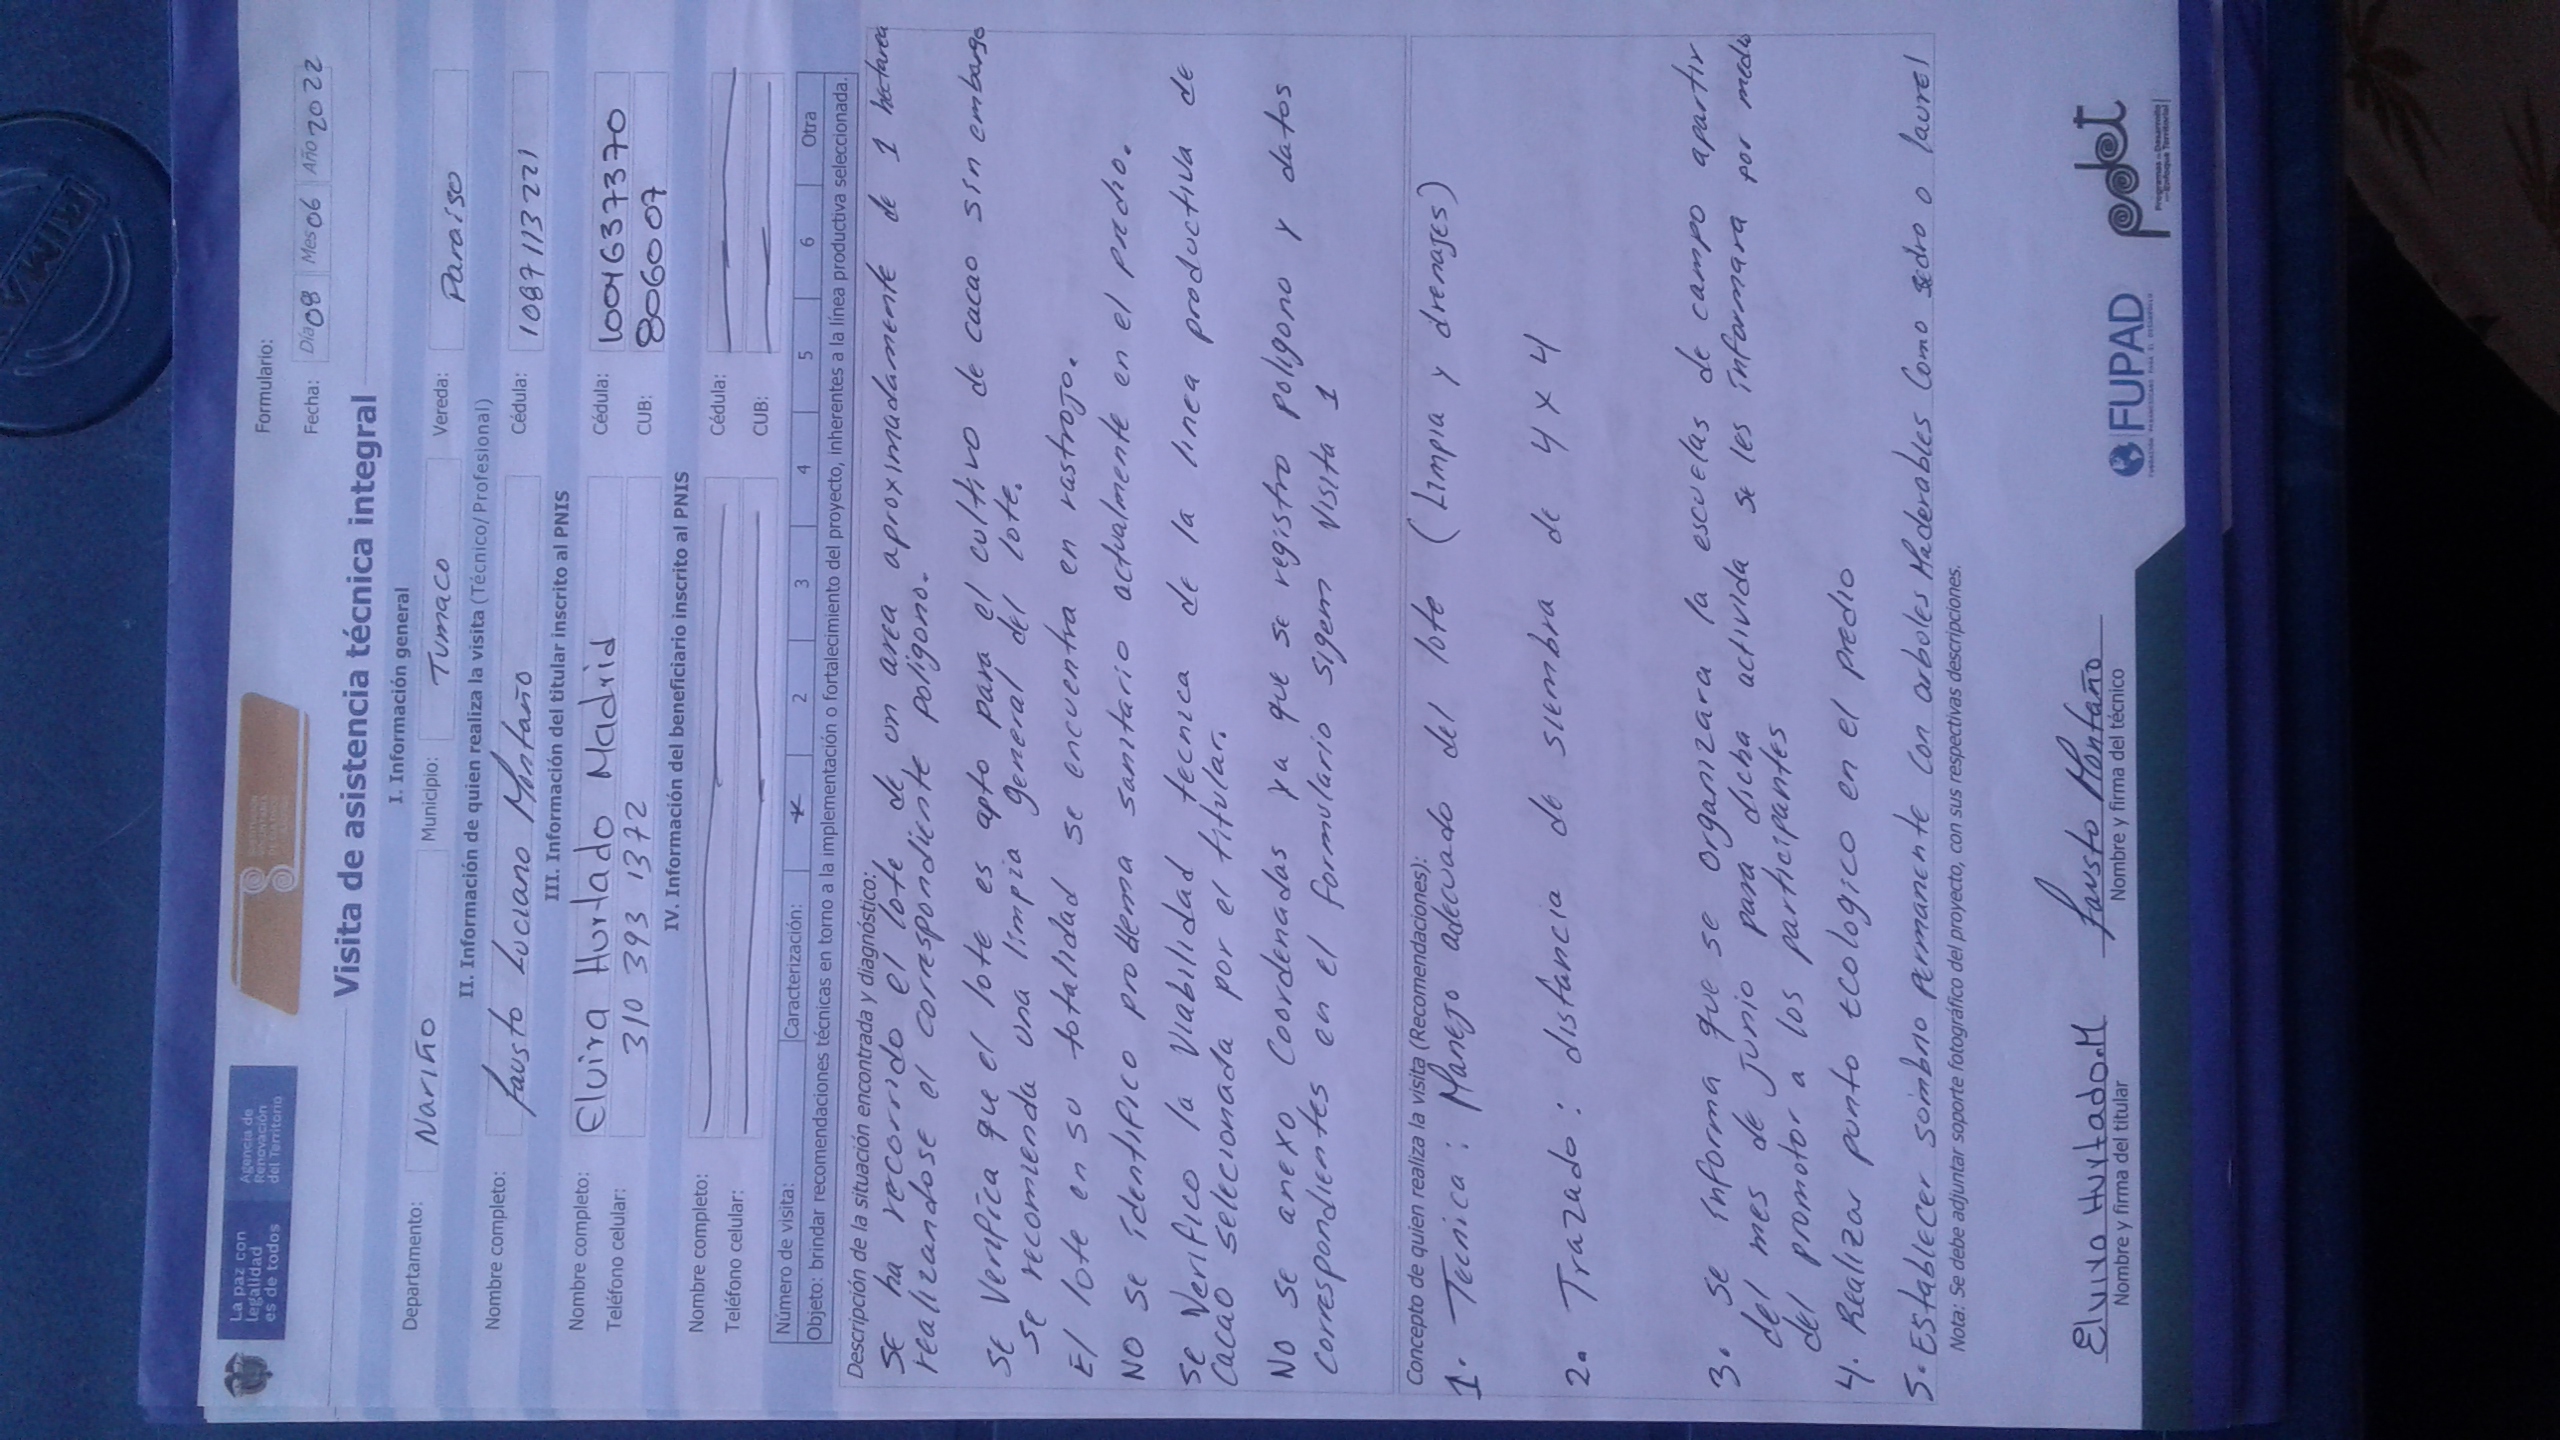 La paz con
legalidad
es de todos
Agencia de
Renovación
del Territorio
Formulario:
Fecha: Día 08 Mes 06 Año 2022
Visita de asistencia técnica integral
I. Información general
Departamento: Nariño Municipio: Tumaco Vereda: Paraiso
II. Información de quien realiza la visita (Técnico/Profesional)
Nombre completo: Fausto Luciano Montaño Cédula: 1087113221
III. Información del titular inscrito al PNIS
Nombre completo: Elvira Hurtado Madrid Cédula: 1004637370
Teléfono celular: 310 393 1372 CUB: 806007
IV. Información del beneficiario inscrito al PNIS
Nombre completo: Cédula:
Teléfono celular: CUB:
Número de visita: Caracterización: x 2 3 4 5 6 Otra
Objeto: brindar recomendaciones técnicas en torno a la implementación o fortalecimiento del proyecto, inherentes a la línea productiva seleccionada.
Descripción de la situación encontrada y diagnóstico:
Se ha recorrido el lote de un area aproximadamente de 1 hectarea
realizandose el correspondiente poligono.
Se Verifica que el lote es apto para el cultivo de cacao sin embargo
se recomienda una limpia general del lote.
El lote en su totalidad se encuentra en rastrojo.
NO se identifico problema sanitario actualmente en el predio.
Se Verifico la Viabilidad tecnica de la linea productiva de
Cacao seleccionada por el titular.
No se anexo Coordenadas ya que se registro poligono y datos
correspondientes en el formulario sigem Visita 1
Concepto de quien realiza la visita (Recomendaciones):
1. Tecnica: Manejo adecuado del lote (Limpia y drenajes)
2. Trazado: distancia de siembra de 4 x 4
3. Se informa que se organizara la escuelas de campo apartir
del mes de Junio para dicha activida se les informara por medio
del promotor a los participantes
4. Realizar punto ecologico en el predio
5. Establecer sombrio permanente con arboles Maderables Como sedro o laurel
Nota: Se debe adjuntar soporte fotográfico del proyecto, con sus respectivas descripciones.
Elvira Hurtado.M Fausto Montaño
Nombre y firma del titular Nombre y firma del técnico
FUPAD
FUNDACIÓN PANAMERICANA PARA EL DESARROLLO
pdet
Programas de Desarrollo
con Enfoque Territorial